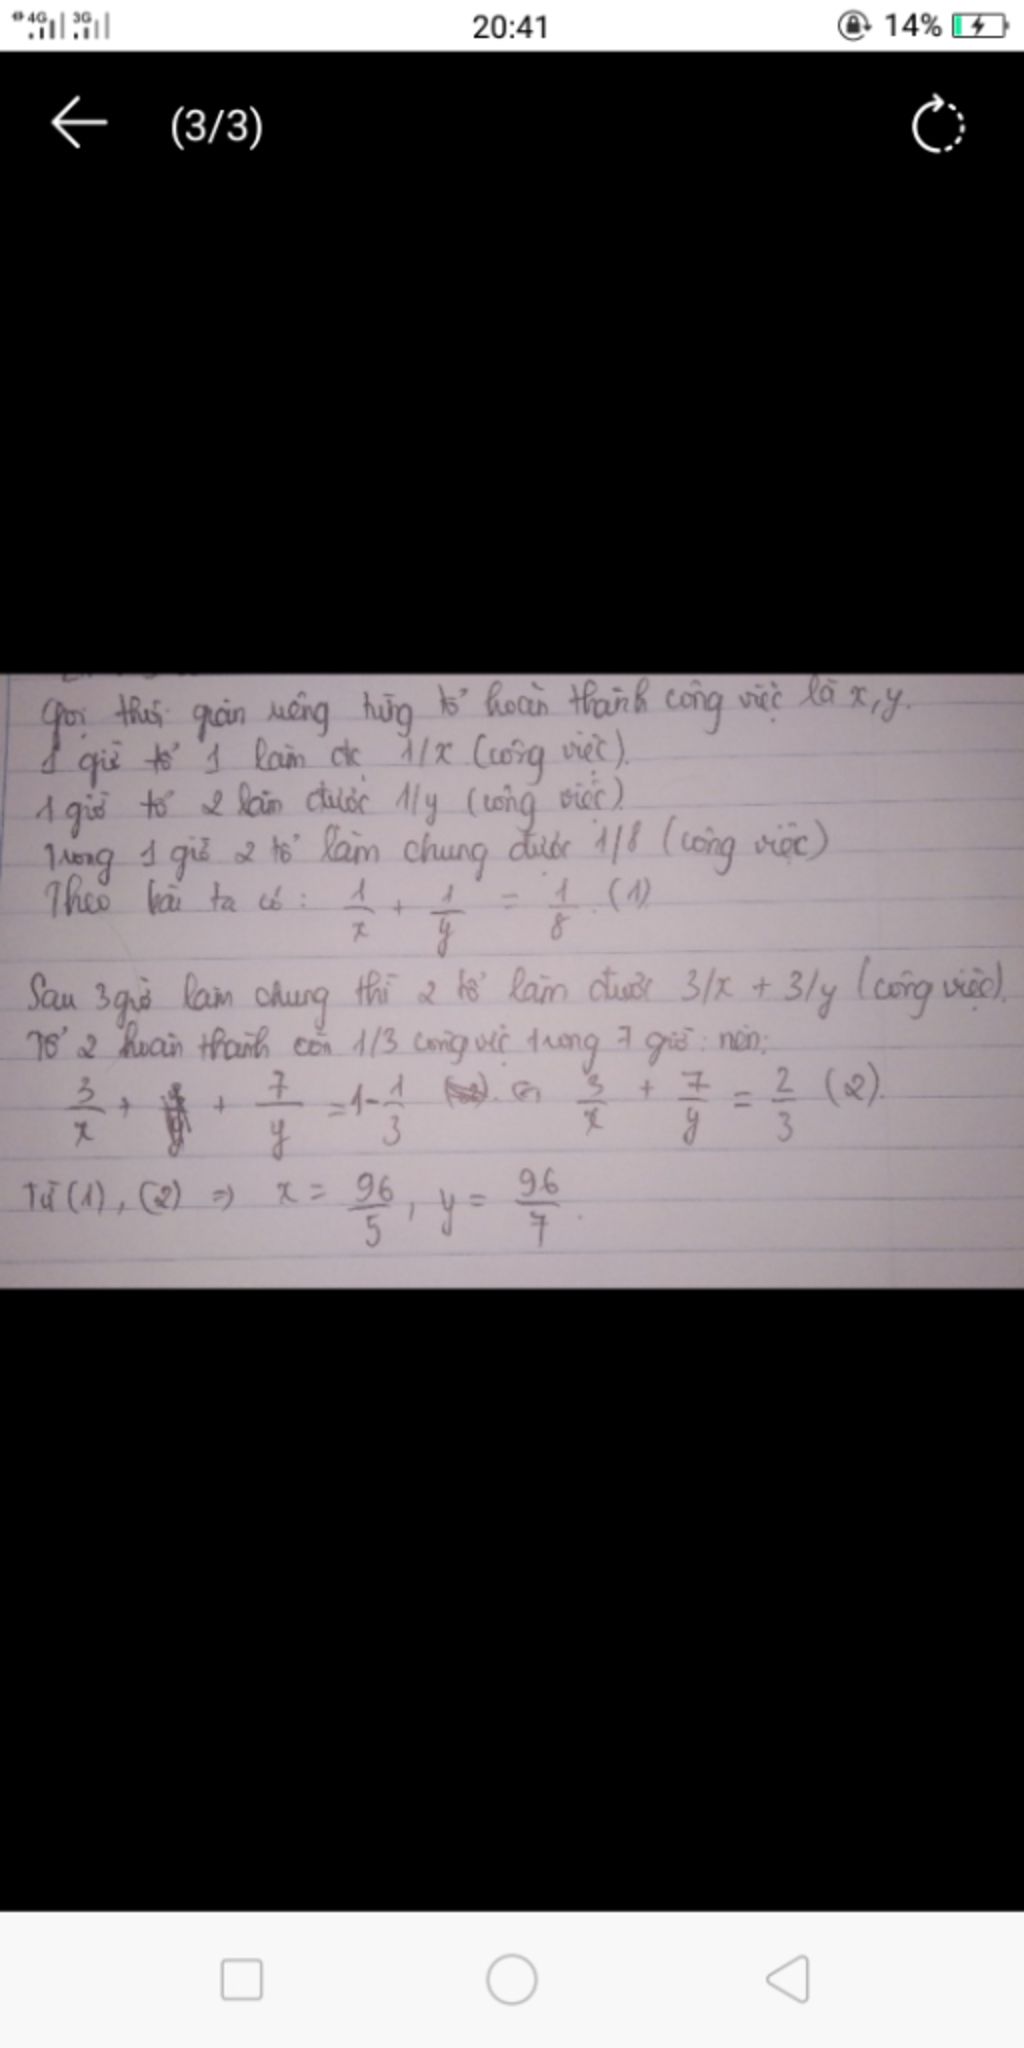 4G 3G 20:41 14%
(3/3)
Gọi thời gian riêng từng tổ hoàn thành công việc là x, y.
1 giờ tổ 1 làm đc 1/x (công việc).
1 giờ tổ 2 làm được 1/y (công việc)
Trong 1 giờ 2 tổ làm chung được 1/8 (công việc)
Theo bài ta có: 1/x + 1/y = 1/8. (1)
Sau 3 giờ làm chung thì 2 tổ làm được 3/x + 3/y (công việc).
Tổ 2 hoàn thành còn 1/3 công việc trong 7 giờ: nên:
3/x + + 7/y = 1 - 1/3 3/x + 7/y = 2/3 (2).
Từ (1), (2) => x = 96/5, y = 96/7.